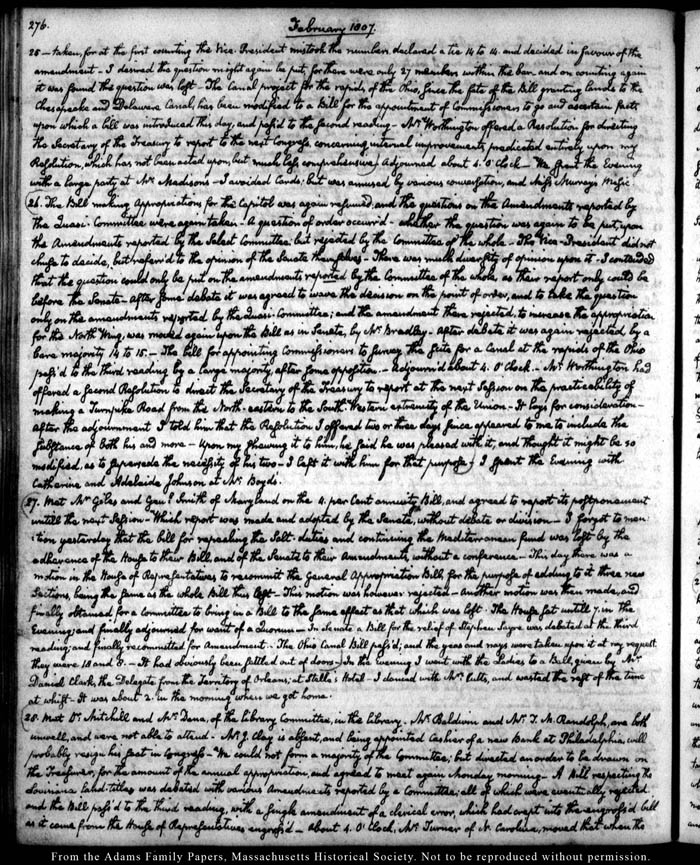 276.
February 1807.
25 — taken, for at the first counting the Vice-President mistook the numbers declared a tie 14 to 14. and decided in favour of the
amendment — I desired the question might again be put, for there were only 27 members within the bar, and on counting again
it was found the question was lost — The Canal project for the rapids of the Ohio, since the fate of the Bill granting Lands to the
Chesapeake and Delaware Canal, has been modified to a Bill for the appointment of Commissioners to go and ascertain facts
upon which a bill was introduced this day, and pass'd to the second reading — Mr. Worthington offered a Resolution for directing
the Secretary of the Treasury to report to the next Congress concerning internal improvements, predicated entirely upon my
Resolution, which has not been acted upon; but much less comprehensive. Adjourned about 4. O'Clock — We spent the Evening
with a large party at Mr. Madison's — I avoided Cards; but was amused by various conversation, and Miss Murray's Music.
26. The Bill making Appropriation for the Capitol was again resumed, and the questions on the Amendments reported by
the Quasi-Committee were again taken — A question of order occurr'd — whether the question was again to be put, upon
the Amendments reported by the Select Committee but rejected by the Committee of the whole — The Vice-President did not
chuse to decide, but referr'd to the opinion of the Senate themselves — There was much diversity of opinion upon it — I contended
that the question could only be put on the amendments reported by the Committee of the whole, as their report only could be
before the Senate — After some debate it was agreed to wave the decision on the point of order, and to take the question
only on the amendments reported by the Quasi-Committee; and the amendment there rejected, to increase the appropriation
for the North Wing, was moved again upon the Bill as in Senate, by Mr. Bradley — After debate it was again rejected by a
bare majority 14 to 15. — The bill for appointing Commissioners to survey the scite for a Canal at the rapids of the Ohio
pass'd to the third reading by a large majority, after some opposition. — Adjourn'd about 4. O'Clock. — Mr. Worthington had
offered a second Resolution to direct the Secretary of the Treasury to report at the next Session on the practicability of
making a Turnpike Road from the North-eastern to the South-Western extremity of the Union — It lays for consideration —
After the adjournment I told him that the Resolution I offered two or three days since appeared to me to include the
substance of both his and more — Upon my shewing it to him, he said he was pleased with it, and thought it might be so
modified, as to supersede the necessity of his two — I left it with him for that purpose; I spent the Evening with
Catherine and Adelaide Johnson at Mr. Boyd's.
27. Met Mr. Giles and Genl. Smith of Maryland on the 4. per Cent annuity Bill, and agreed to report its postponement
untill the next Session — Which report was made and adopted by the Senate, without debate or division — I forgot to men-
:tion yesterday that the bill for repealing the Salt-duties and continuing the Mediterranean fund was lost by the
adherence of the House to their Bill, and of the Senate to their Amendments, without a conference — This day there was a
motion in the House of Representatives to recommit the General Appropriation Bill, for the purpose of adding to it three new
Sections, being the same as the whole Bill thus lost — This motion was however rejected — another motion was then made, and
finally obtained for a Committee to bring in a Bill to the same effect as that which was lost. The House sat until 7. in the
Evening; and finally adjourned for want of a Quorum — In Senate a Bill for the relief of Stephen Sayre was debated at the third
reading; and finally recommitted for Amendment. The Ohio Canal Bill pass'd; and the yeas and nays were taken upon it at my request
they were 18 and 8. — It had obviously been settled out of doors — In the evening I went with the Ladies to a Ball, given by Mr.
Daniel Clark, the Delegate from the Territory of Orleans; at Stelle's Hotel — I danced with Mrs. Cutts, and wasted the rest of the time
at whist — It was about 2. in the morning when we got home.
28. Met Dr. Mitchill and Mr. Dana, of the Library Committee, in the Library. Mr. Baldwin and Mr. T. M. Randolph, are both
unwell, and were not able to attend — Mr. J. Clay is absent, and being appointed Cashier of a new Bank at Philadelphia, will
probably resign his seat in Congress. We could not form a majority of the Committee; but directed an order to be drawn on
the Treasurer, for the amount of the annual appropriation, and agreed to meet again Monday morning — A Bill respecting the
Louisiana Land-titles was debated with various Amendments reported by a Committee; all of which were eventually rejected
and the Bill pass'd to the third reading, with a single amendment of a clerical error, which had crept into the engross'd bill
as it came from the House of Representatives engross'd — About 4. O'Clock, Mr. Turner of N. Carolina, moved that when the
From the Adams Family Papers, Massachusetts Historical Society. Not to be reproduced without permission.